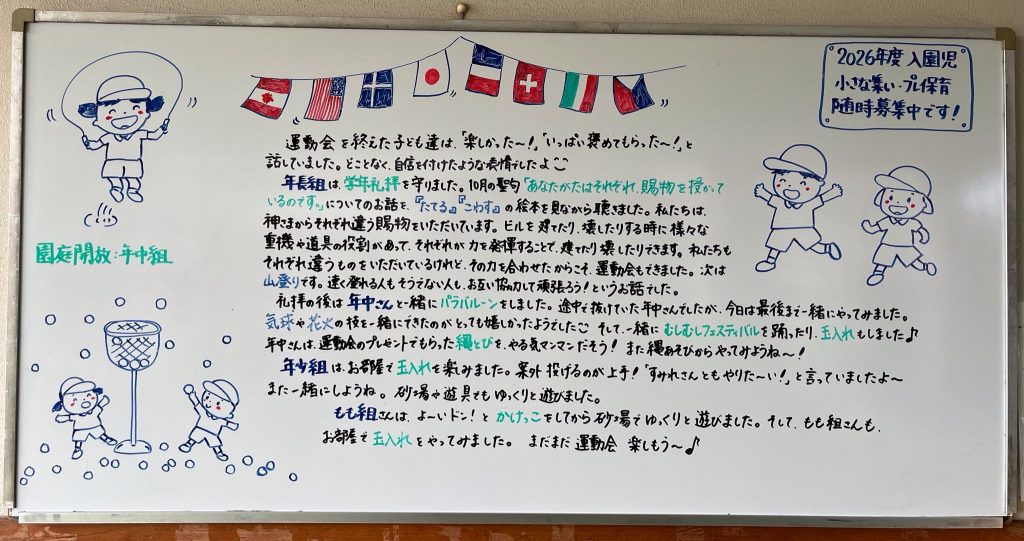 2026年度 入園児
小さな集い・プレ保育
随時募集中です！
運動会を終えた子ども達は、「楽しかった〜！」「いっぱい褒めてもらった〜！」と
話していました。どことなく、自信を付けたような表情でしたよ
年長組は、学年礼拝を守りました。10月の聖句「あなたがたはそれぞれ、賜物を授かって
いるのです。」についてのお話を、『たてる』『こわす』の絵本を見ながら聴きました。私たちは、
神さまからそれぞれ違う賜物をいただいています。ビルを建てたり、壊したりする時に様々な
重機や道具の役割があって、それぞれが力を発揮することで、建てたり壊したりできます。私たちも
それぞれ違うものをいただいているけれど、その力を合わせたからこそ、運動会もできました。次は
山登りです。速く登れる人もそうでない人も、お互い協力して頑張ろう！というお話でした。
礼拝の後は年中さんと一緒にパラバルーンをしました。途中で抜けていた年中さんでしたが、今日は最後まで一緒にやってみました。
気球や花火の技を一緒にできたのがとっても嬉しかったようでした そして、一緒にむしむしフェスティバルを踊ったり、玉入れもしました♪
年中さんは、運動会のプレゼントでもらった縄とびを、やる気マンマンだそう！また縄あそびからやってみようね〜！
年少組は、お部屋で玉入れを楽しみました。案外 投げるのが上手！「すみれさんともやりた〜い！」と言っていましたよ〜
また一緒にしようね。砂場や遊具でもゆっくりと遊びました。
もも組さんは、よ〜いドン！とかけっこをしてから砂場でゆっくりと遊びました。そして、もも組さんも、
お部屋で玉入れをやってみました。 まだまだ運動会 楽しもう〜♪
園庭開放：年中組